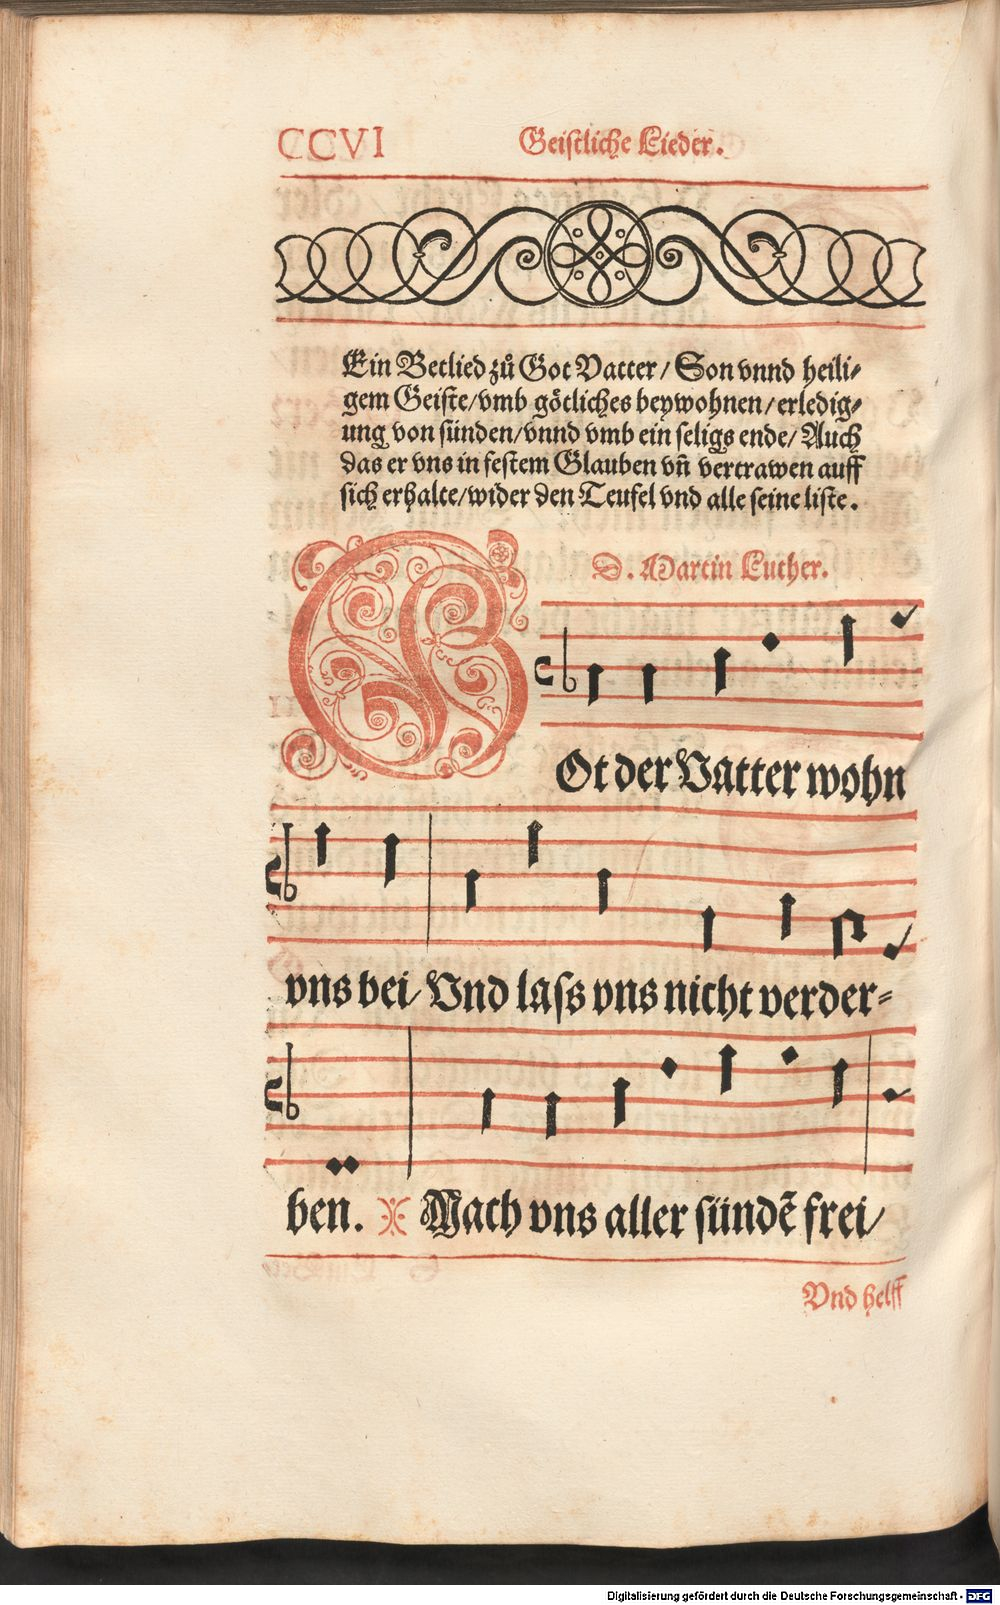 CCVI
Geistliche Lieder.
Ein Betlied zů Got Vatter / Son vnnd heili⸗
gem Geiste/vmb götliches beywohnen/erledig⸗
ung von sünden/vnnd vmb ein seligs ende/ Auch
das er vns in festem Glauben vñ vertrawen auff
sich erhalte/wider den Teufel vnd alle seine liste.
D. Martin Luther.
GOt der Vatter wohn
vns bei/ Vnd lass vns nicht verder⸗
ben. Mach vns aller sündẽ frei/
Vnd helff
Digitalisierung gefördert durch die Deutsche Forschungsgemeinschaft - DFG